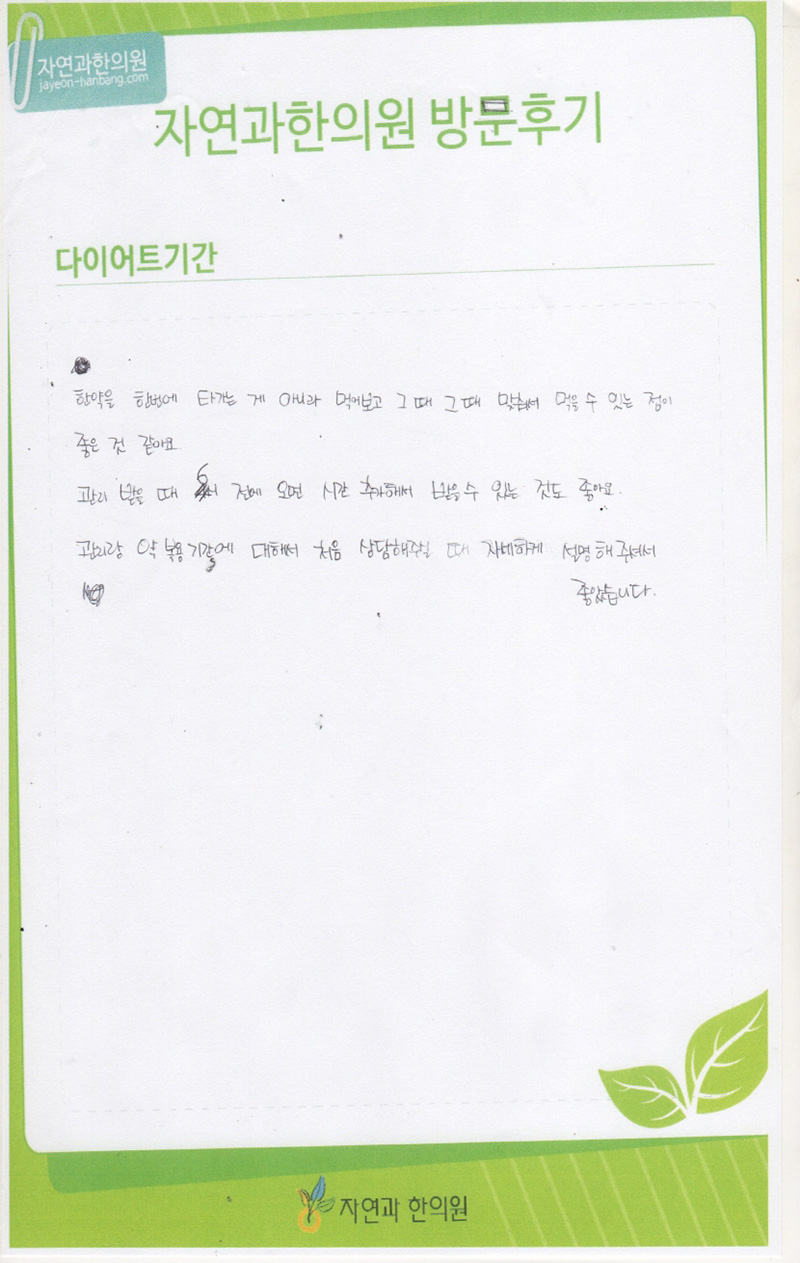 자연과한의원
jayeon-hanbang.com
자연과한의원 방문후기
다이어트기간
한약을 한번에 타가는 게 아니라 먹어보고 그때 그때 맞춰서 먹을 수 있는 점이
좋은 것 같아요
관리 받을 때 6시 전에 오면 시간 추가해서 받을 수 있는 것도 좋아요.
관리랑 약 복용기간에 대해서 처음 상담해주실 때 자세하게 설명해 주셔서
좋았습니다.
자연과 한의원